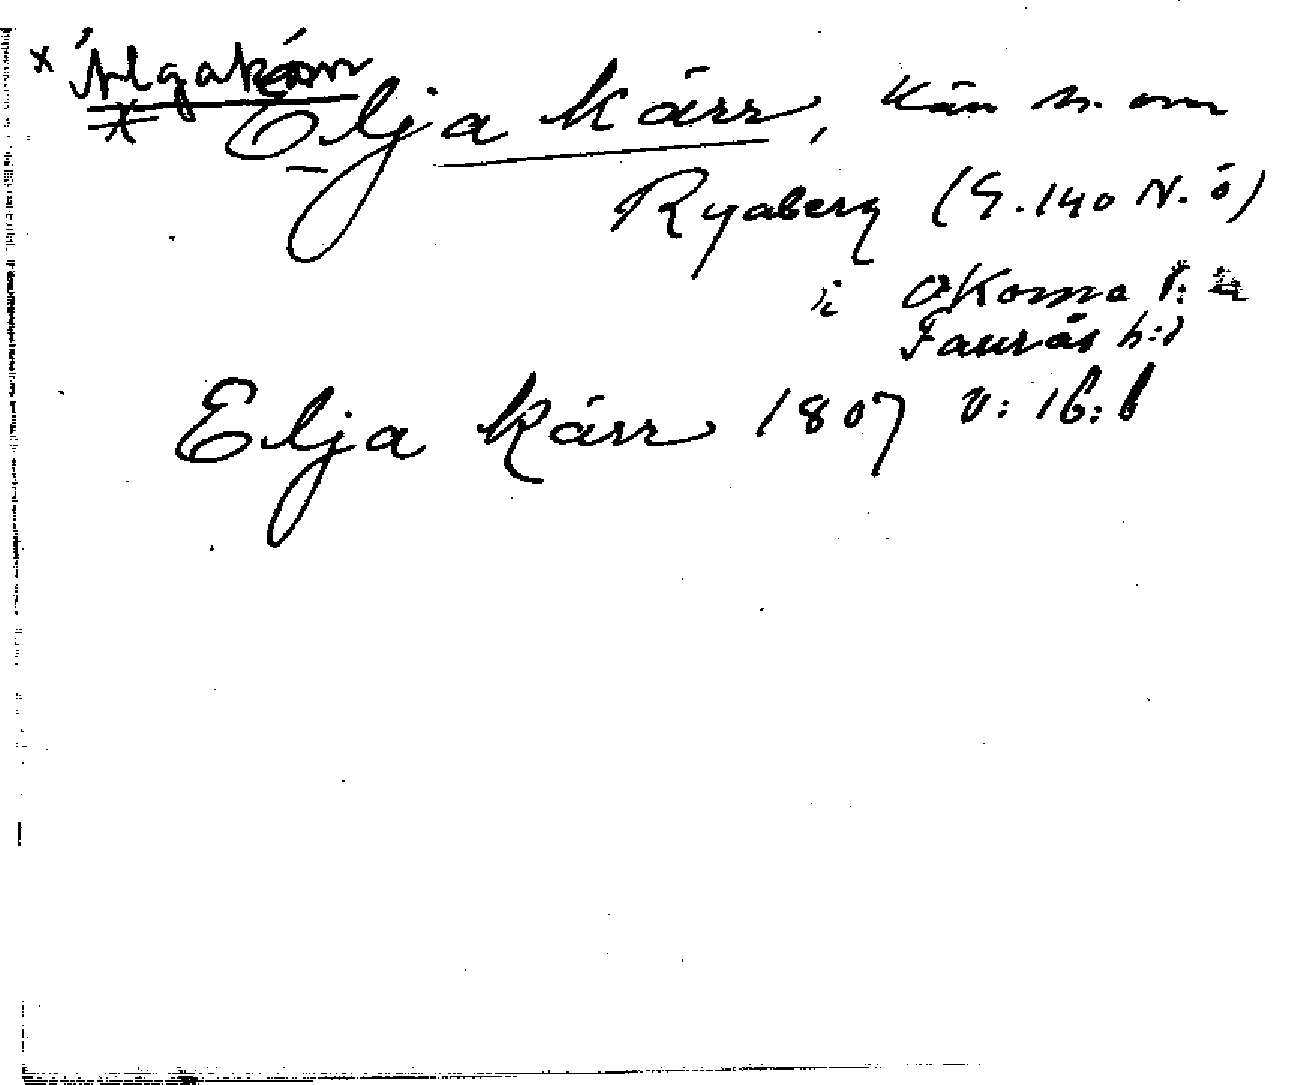 x Älgakärr
* Elja Kärr, Kärr n. om
Ryaberg (S. 140 N. ö)
i Okome s:n
Faurås h:d
Elja Kärr 1807 V: 16: 1